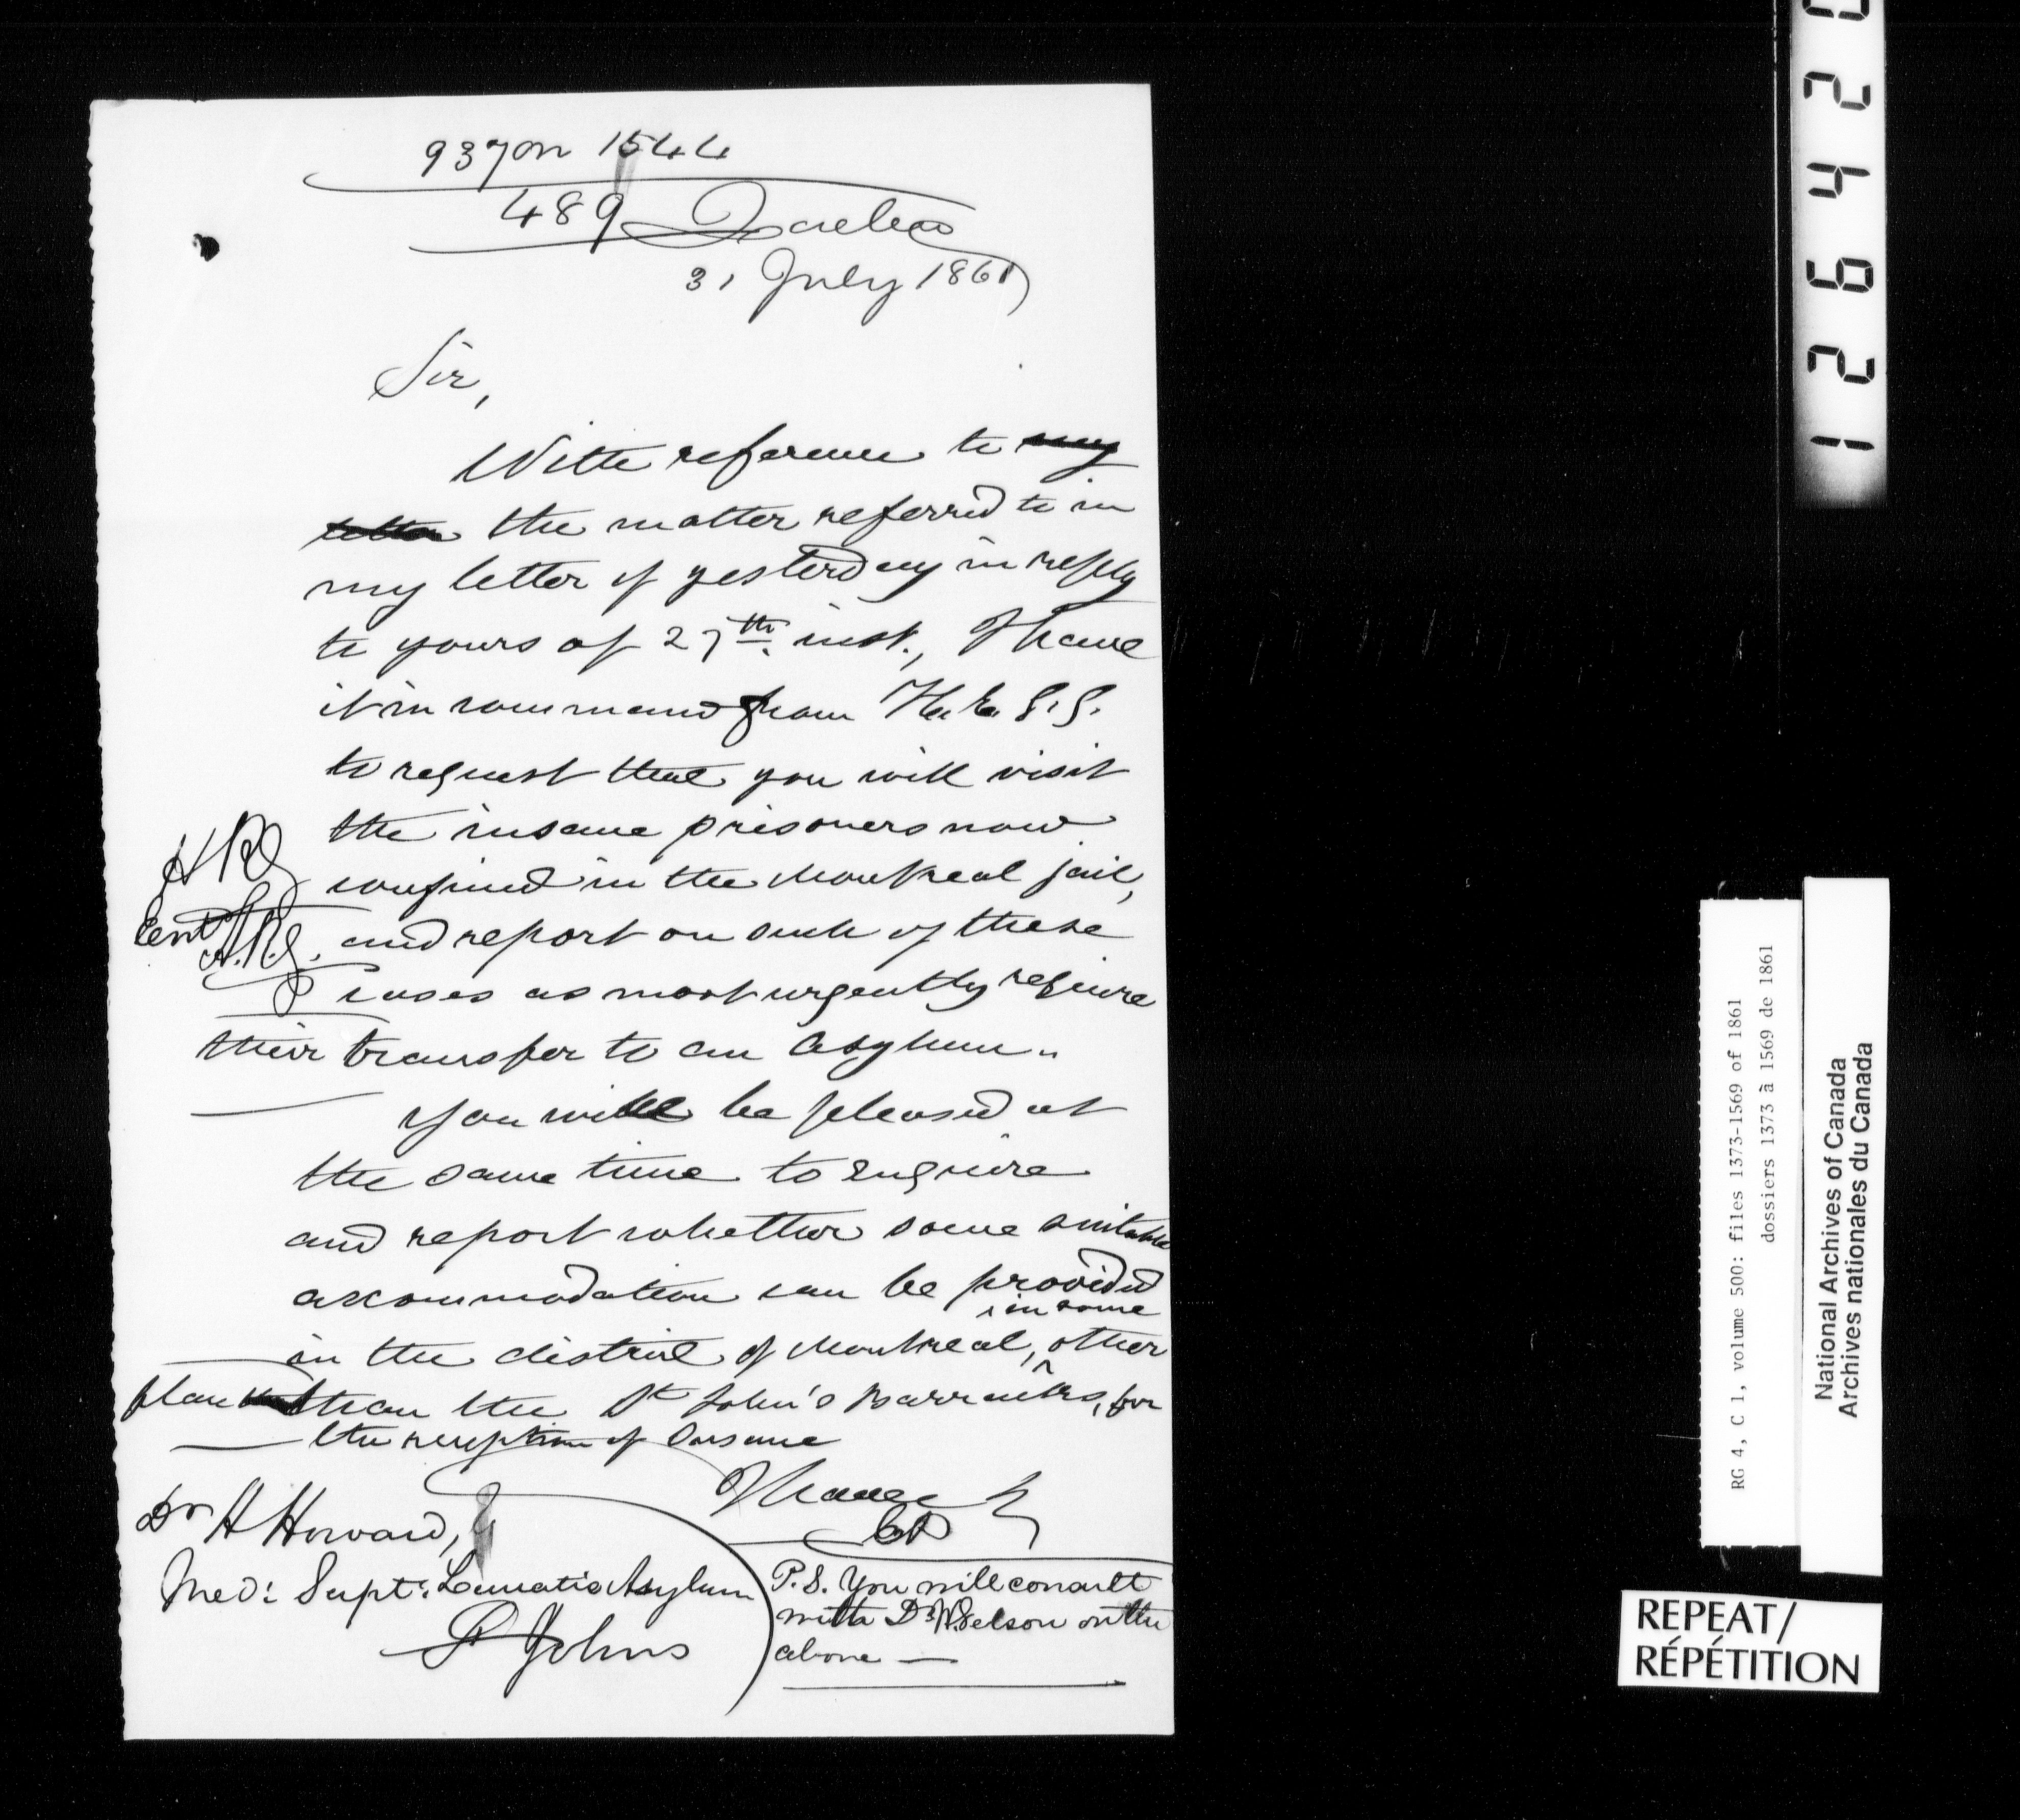 937 on 1544
489 Quebec
31 July 1861
Sir,
With reference to my
letter the matter referred to in
my letter of yesterday in reply
to yours of 27th inst., I have
it in command from H. E. G. G.
to request that you will visit
the insane prisoners now
confined in the Montreal jail,
and report on such of these
cases as most urgently require
their transfer to an Asylum.
You will be pleased at
the same time to enquire
and report whether some suitable
accommodation can be provided
in the district of Montreal, in some other
place than the St John's Barracks, for
the reception of Insane
I have &
Dr H Howard,
Med: Supt: Lunatic Asylum
St Johns
P.S. You will consult
with Dr W. Nelson on the
above —
RG 4, C 1, volume 500: files 1373-1569 of 1861
dossiers 1373 à 1569 de 1861
National Archives of Canada
Archives nationales du Canada
REPEAT/
RÉPÉTITION